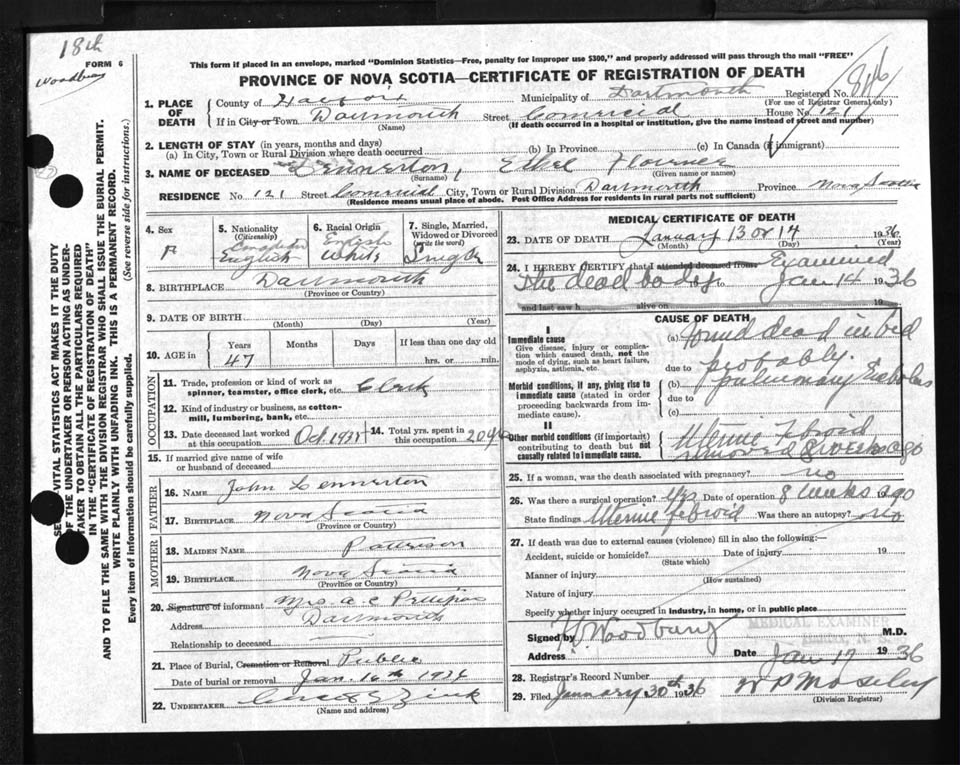 18th
FORM 6
Woodbury
This form if placed in an envelope, marked "Dominion Statistics—Free, penalty for improper use $300," and properly addressed will pass through the mail "FREE"
PROVINCE OF NOVA SCOTIA—CERTIFICATE OF REGISTRATION OF DEATH
Registered No.
(For use of Registrar General only)
1. PLACE OF DEATH
County of Halifax
Municipality of Dartmouth
If in City or Town Dartmouth
(Name)
Street Commercial House No. 121
(If death occurred in a hospital or institution, give the name instead of street and number)
2. LENGTH OF STAY (in years, months and days)
(a) In City, Town or Rural Division where death occurred (b) In Province (c) In Canada (if immigrant)
3. NAME OF DECEASED Ethel Florence
(Surname) (Given name or names)
RESIDENCE No. 121 Street Commercial City, Town or Rural Division Dartmouth Province Nova Scotia
(Residence means usual place of abode. Post Office Address for residents in rural parts not sufficient)
4. Sex F
5. Nationality (Citizenship) Canadian English
6. Racial Origin English White
7. Single, Married, Widowed or Divorced (write the word) Single
8. BIRTHPLACE Dartmouth
(Province or Country)
9. DATE OF BIRTH
(Month) (Day) (Year)
10. AGE in Years Months Days If less than one day old
47 hrs. or min.
OCCUPATION
11. Trade, profession or kind of work as spinner, teamster, office clerk, etc. Clerk
12. Kind of industry or business, as cotton-mill, lumbering, bank, etc.
13. Date deceased last worked at this occupation Oct. 1935
14. Total yrs. spent in this occupation 20 yrs
15. If married give name of wife or husband of deceased
FATHER
16. NAME John Lennerton
17. BIRTHPLACE Nova Scotia
(Province or Country)
MOTHER
18. MAIDEN NAME Patterson
19. BIRTHPLACE Nova Scotia
(Province or Country)
20. Signature of informant Mrs. A C
Address Dartmouth
Relationship to deceased
21. Place of Burial, Cremation or Removal Public
Date of burial or removal Jan. 16th 1936
22. UNDERTAKER Zink
(Name and address)
MEDICAL CERTIFICATE OF DEATH
23. DATE OF DEATH January 13 or 14, 1936
(Month) (Day) (Year)
24. I HEREBY CERTIFY that I attended deceased from Examined
the dead body to Jan 14 1936
and last saw h alive on 19
CAUSE OF DEATH
I
Immediate cause
Give disease, injury or complication which caused death, not the mode of dying, such as heart failure, asphyxia, asthenia, etc.
(a) Found dead in bed
due to probably
Morbid conditions, if any, giving rise to immediate cause (stated in order proceeding backwards from immediate cause).
(b) pulmonary Embolus
due to
(c)
II
Other morbid conditions (if important) contributing to death but not causally related to immediate cause.
Uterine Febroid
removed 8 weeks ago
25. If a woman, was the death associated with pregnancy? no
26. Was there a surgical operation? Yes Date of operation 8 weeks ago 19
State findings Uterine Febroid Was there an autopsy? no
27. If death was due to external causes (violence) fill in also the following:—
Accident, suicide or homicide? Date of injury 19
(State which)
Manner of injury
(How sustained)
Nature of injury
Specify whether injury occurred in industry, in home, or in public place
MEDICAL EXAMINER
Signed by Woodbury M.D.
Address Date Jan 17 1936
28. Registrar's Record Number
29. Filed January 30th 1936 W P Moseley
(Division Registrar)
SEE VITAL STATISTICS ACT MAKES IT THE DUTY
OF THE UNDERTAKER OR PERSON ACTING AS UNDER-
TAKER TO OBTAIN ALL THE PARTICULARS REQUIRED
IN THE "CERTIFICATE OF REGISTRATION OF DEATH"
AND TO FILE THE SAME WITH THE DIVISION REGISTRAR WHO SHALL ISSUE THE BURIAL PERMIT.
WRITE PLAINLY WITH UNFADING INK. THIS IS A PERMANENT RECORD.
Every item of information should be carefully supplied. (See reverse side for instructions.)